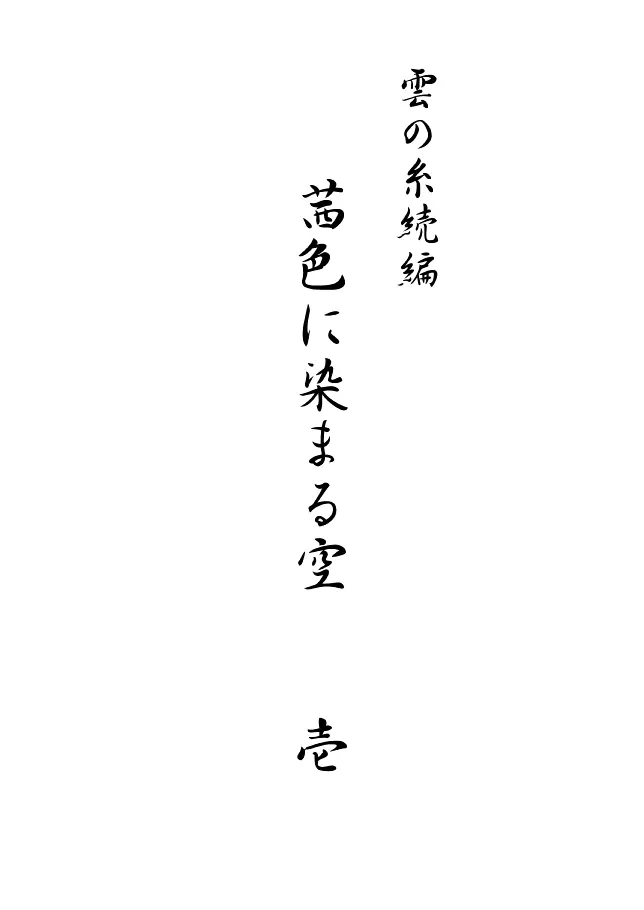 雲の糸続編
茜色に染まる空　壱